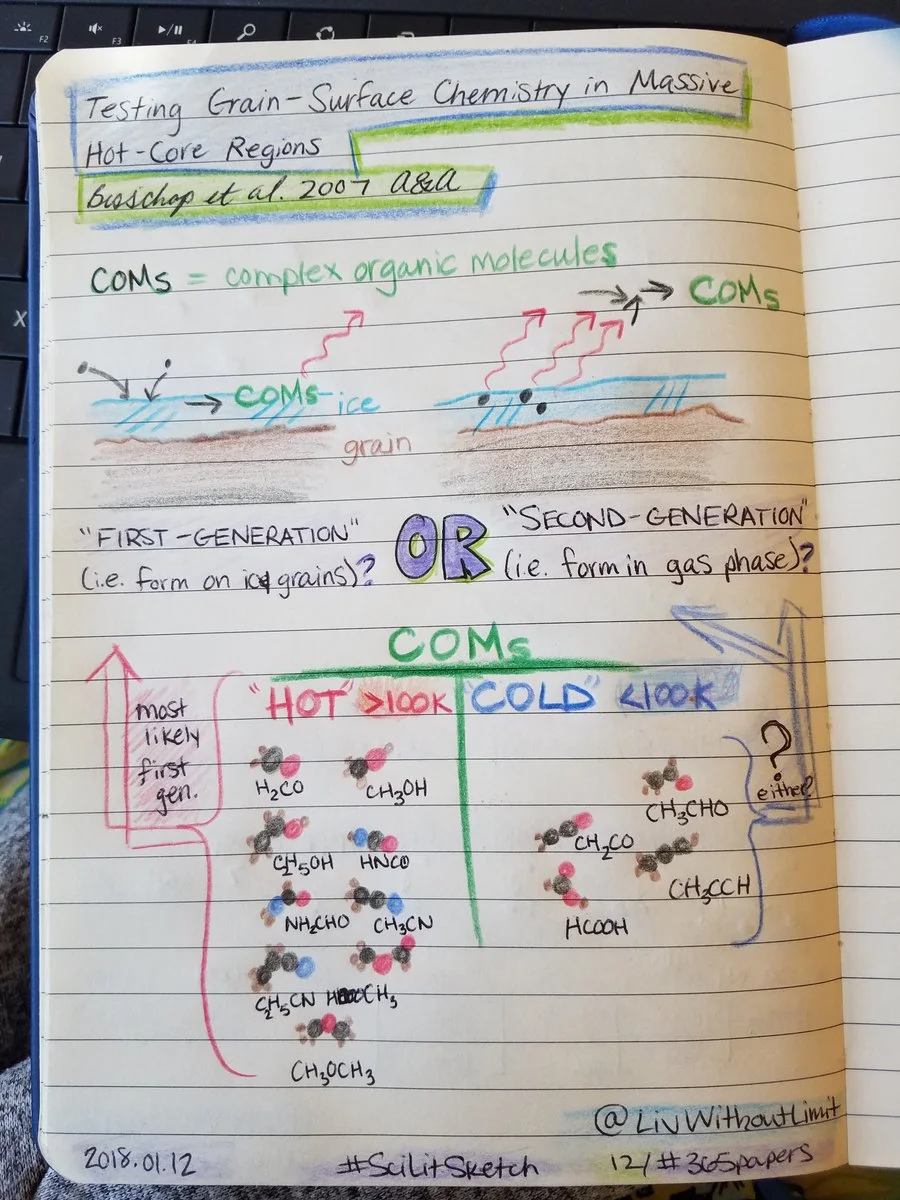 F2
F3
Testing Grain-Surface Chemistry in Massive
Hot-Core Regions
Bisschop et al. 2007 A&A
COMs = complex organic molecules
COMs
COMs ice
grain
"FIRST-GENERATION"
(i.e. form on icy grains)?
OR
"SECOND-GENERATION"
(i.e. form in gas phase)?
COMs
"HOT" >100K
"COLD" <100K
most
likely
first
gen.
H2CO
CH3OH
C2H5OH
HNCO
NH2CHO
CH3CN
C2H5CN
CH3OCH3
CH3CHO
CH2CO
CH3CCH
HCOOH
?
either?
@LivWithoutLimit
2018.01.12
#SciLitSketch
12/#365papers